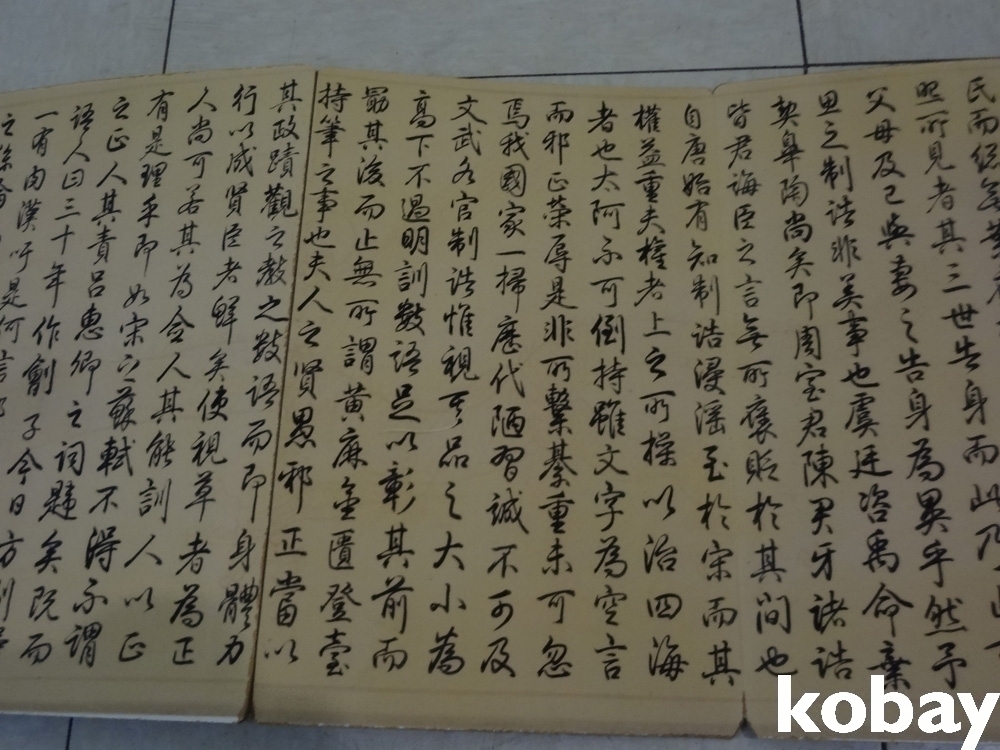 照所見者其三世告身而
父母及己與妻之告身為異乎然予
思之制誥非美事也虞廷咨禹命棄
契皋陶尚矣即周室君陳君牙諸誥
皆君誨臣之言無所褒貶於其間也
自唐始有知制誥浸淫至於宋而其
權益重夫權者上之所操以治四海
者也太阿不可倒持雖文字為空言
而邪正榮辱是非所繫綦重未可忽
焉我國家一掃歷代陋習誠不可及
文武各官制誥惟視其品之大小為
高下不過明訓數語足以彰其前而
勗其後而止無所謂黃麻金匱登臺
持筆之事也夫人之賢愚邪正當以
其政蹟觀之教之數語而即身體力
行以成賢臣者鮮矣使視草者為正
人尚可若其為僉人其能訓人以正
有是理乎即如宋之蘇軾不得不謂
之正人其責呂惠卿之詞題矣既而
語人曰三十年作劊子今日方剮
一有肉漢吁是何言
kobay